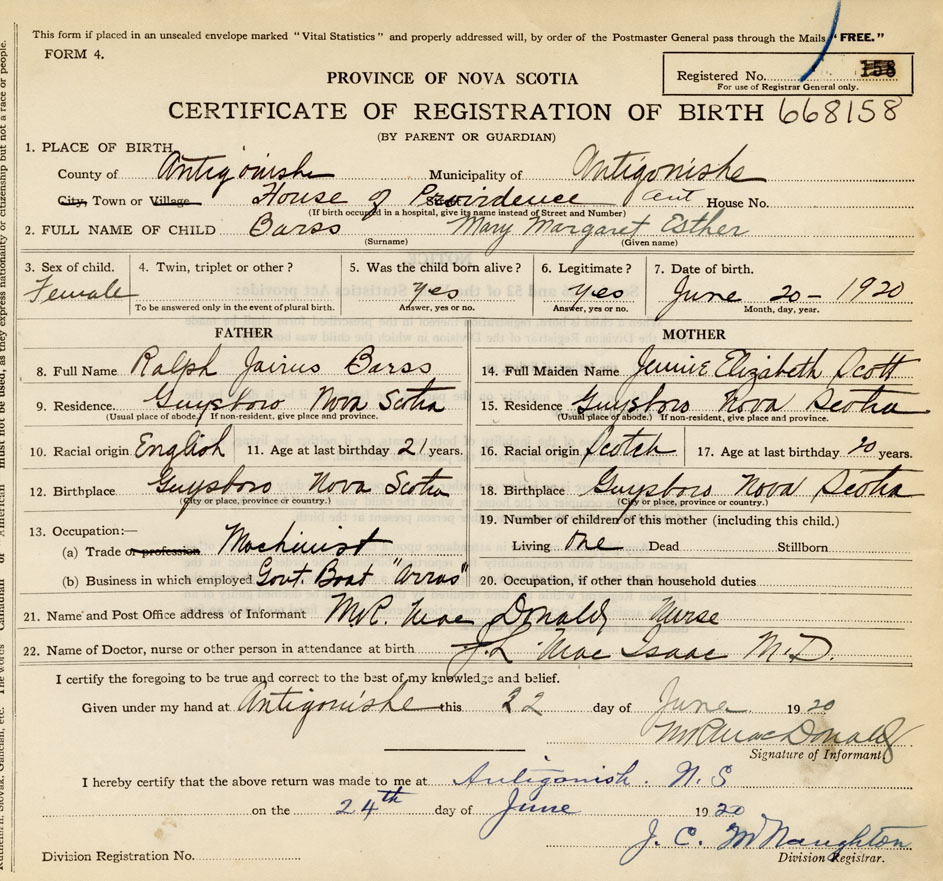 This form if placed in an unsealed envelope marked "Vital Statistics" and properly addressed will, by order of the Postmaster General pass through the Mails "FREE."
FORM 4.
PROVINCE OF NOVA SCOTIA
Registered No. 158
For use of Registrar General only.
CERTIFICATE OF REGISTRATION OF BIRTH 668158
(BY PARENT OR GUARDIAN)
1. PLACE OF BIRTH
County of Antigonishe Municipality of Antigonishe
City, Town or Village House of Providence Ant House No.
(If birth occurred in a hospital, give its name instead of Street and Number)
2. FULL NAME OF CHILD Barss Mary Margaret Esther
(Surname) (Given name)
3. Sex of child. 4. Twin, triplet or other? 5. Was the child born alive? 6. Legitimate? 7. Date of birth.
Female yes yes June 20 - 1920
To be answered only in the event of plural birth. Answer, yes or no. Answer, yes or no. Month, day, year.
FATHER MOTHER
8. Full Name Ralph Jairus Barss 14. Full Maiden Name Jennie Elizabeth Scott
9. Residence. Guysboro Nova Scotia 15. Residence Guysboro Nova Scotia
(Usual place of abode.) If non-resident, give place and province. (Usual place of abode.) If non-resident, give place and province.
10. Racial origin English 11. Age at last birthday 21 years. 16. Racial origin Scotch 17. Age at last birthday 20 years.
12. Birthplace Guysboro Nova Scotia 18. Birthplace Guysboro Nova Scotia
(City or place, province or country.) (City or place, province or country.)
13. Occupation:— 19. Number of children of this mother (including this child.)
(a) Trade or profession Machinist Living One Dead Stillborn
(b) Business in which employed Govt. Boat "Arras" 20. Occupation, if other than household duties
21. Name and Post Office address of Informant M.R. Mac Donald Nurse
22. Name of Doctor, nurse or other person in attendance at birth J.L Mac Isaac M.D.
I certify the foregoing to be true and correct to the best of my knowledge and belief.
Given under my hand at Antigonishe this 22 day of June 1920
M R MacDonald
Signature of Informant
I hereby certify that the above return was made to me at Antigonish. N.S
on the 24th day of June 1920
J. C. McNaughton
Division Registrar.
Division Registration No.